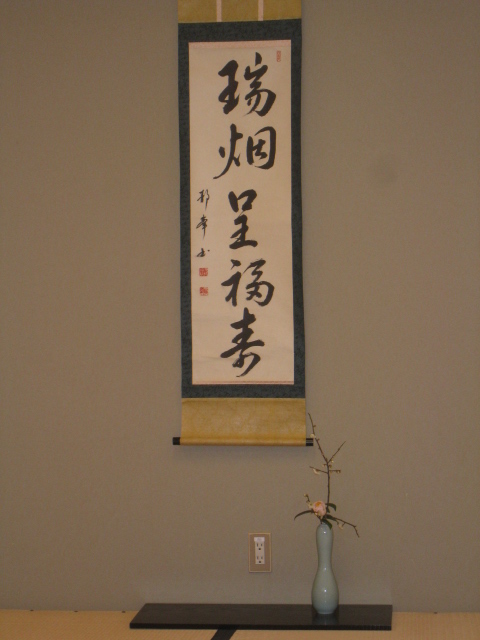 瑞烟呈福寿